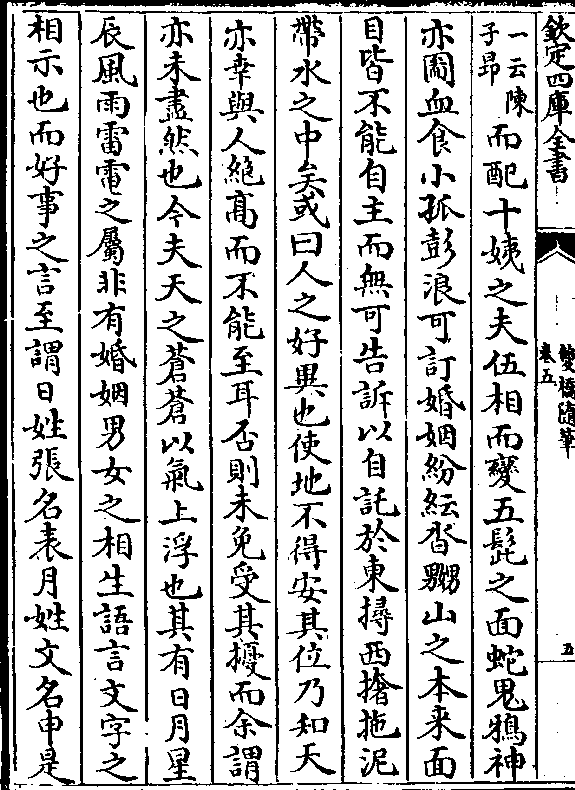 欽定四庫全書
雙橋隨筆
卷五
五
一云陳子昂
而配十姨之夫伍相而變五髭之面蛇鬼鴉神
亦圖血食小孤彭浪可訂婚姻紛紜沓嬲山之本来面
目皆不能自主而無可告訴以自託於東撏西撦拖泥
帶水之中矣或曰人之好異也使地不得安其位乃知天
亦幸與人絕髙而不能至耳否則未免受其擾而余謂
亦未盡然也今夫天之蒼蒼以氣上浮也其有日月星
辰風雨雷電之屬非有婚姻男女之相生語言文字之
相示也而好事之言至謂日姓張名表月姓文名申是